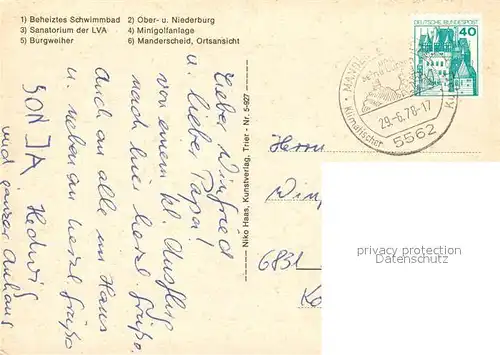 1) Beheiztes Schwimmbad 2) Ober- u. Niederburg
3) Sanatorium der LVA 4) Minigolfanlage
5) Burgweiher 6) Manderscheid, Ortsansicht
DEUTSCHE BUNDESPOST
40
MAND
29.-6.78-17
klimatischer Ku
5562
Lieber Winfried
u. lieber Papa!
von einem kl. Ausflug
nach hier herzl. Grüße.
Auch an alle im Haus
u. neben an herzl. Grüße
SONJA, Hedwig
und ganzer Anhang
Niko Haas, Kunstverlag, Trier - Nr. 5-927
Herrn
Win
6831
privacy protection
AnsichtskartenHandel.de